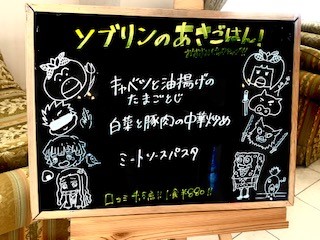 ソブリンのあさごはん!
キャベツと油揚げの
たまごとじ
白菜と豚肉の中華炒め
ミートソースパスタ
口コミ 4.5点!! 1食 ¥880!!